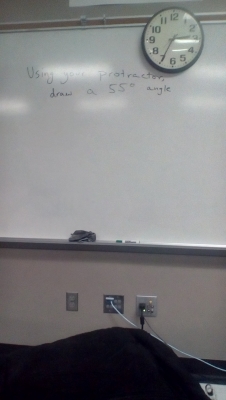 Using your protractor,
draw a 55° angle
12
1
2
3
4
5
6
7
8
9
10
11